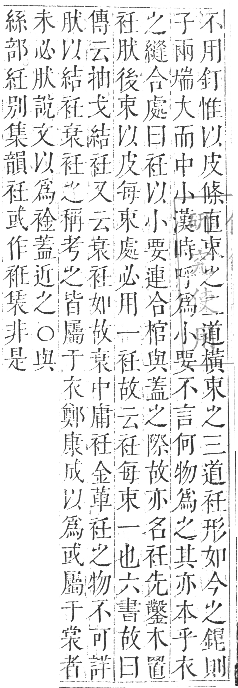 不用釘惟以皮條直束之二道橫束之三道衽形如今之錕則
子兩耑大而中小漢時呼爲小要不言何物爲之其亦木乎衣
之縫合處曰衽以小要連合棺與蓋之際故亦名衽先鑿木置
衽肰後束以皮每束處必用一衽故云衽每束一也六書故曰
傳云抽戈結衽又云衰衽如故衰中庸衽金革衽之物不可詳
肰以結衽衰衽之稱考之皆屬于衣鄭康成以爲或屬于裳者
未必肰說文以爲䘳蓋近之〇與
絲部紝别集韻衽或作袵𧙥非是